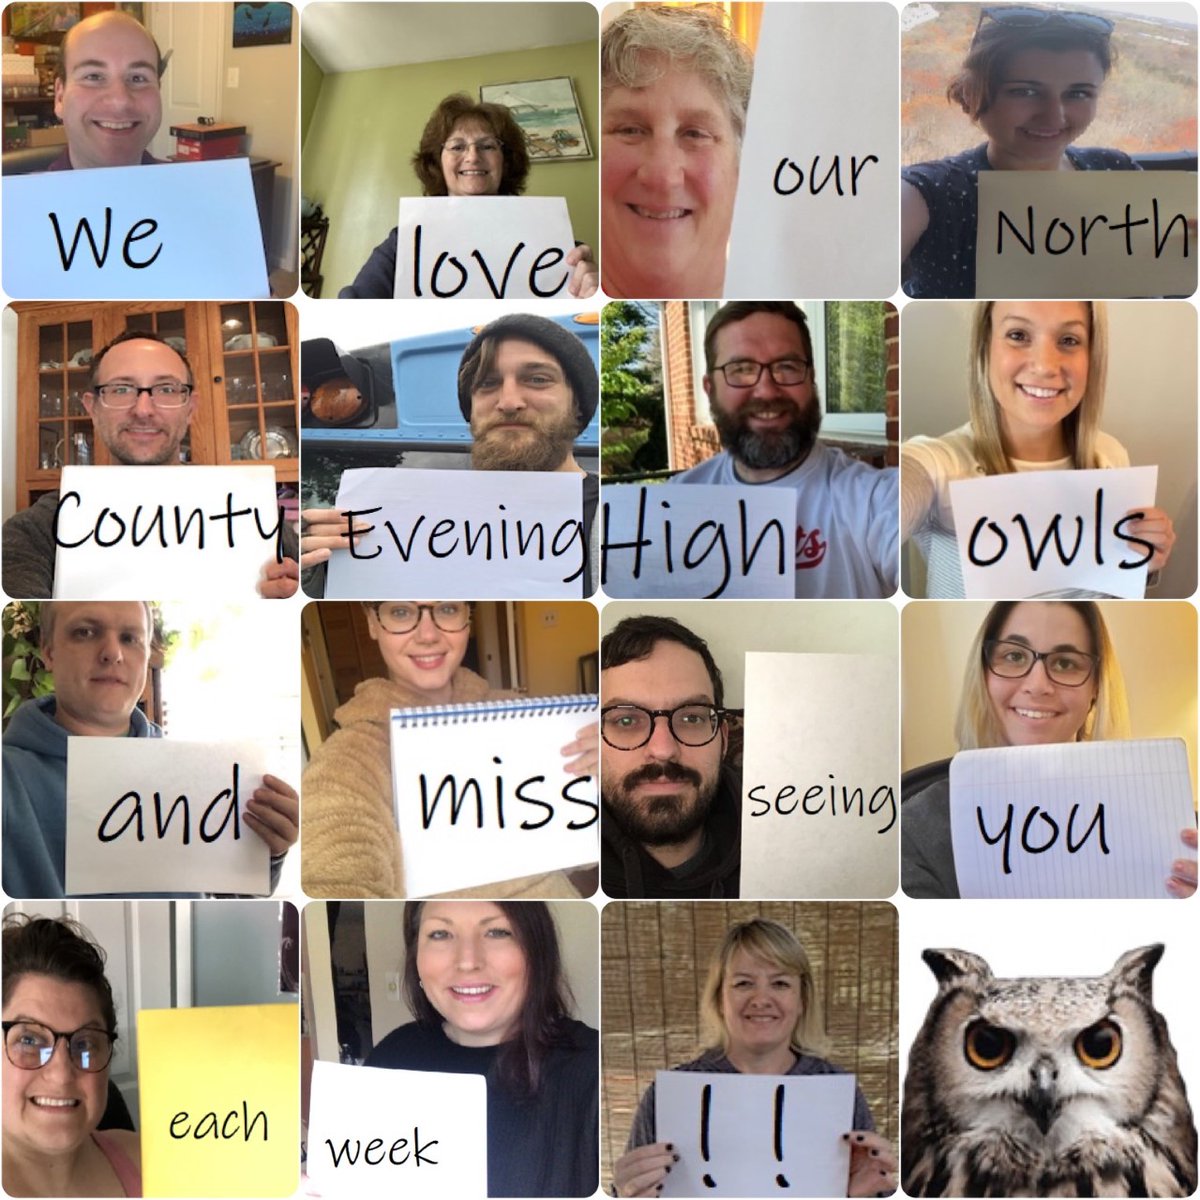 We
love
our
North
County
Evening
High
owls
and
miss
seeing
you
each
week
!!